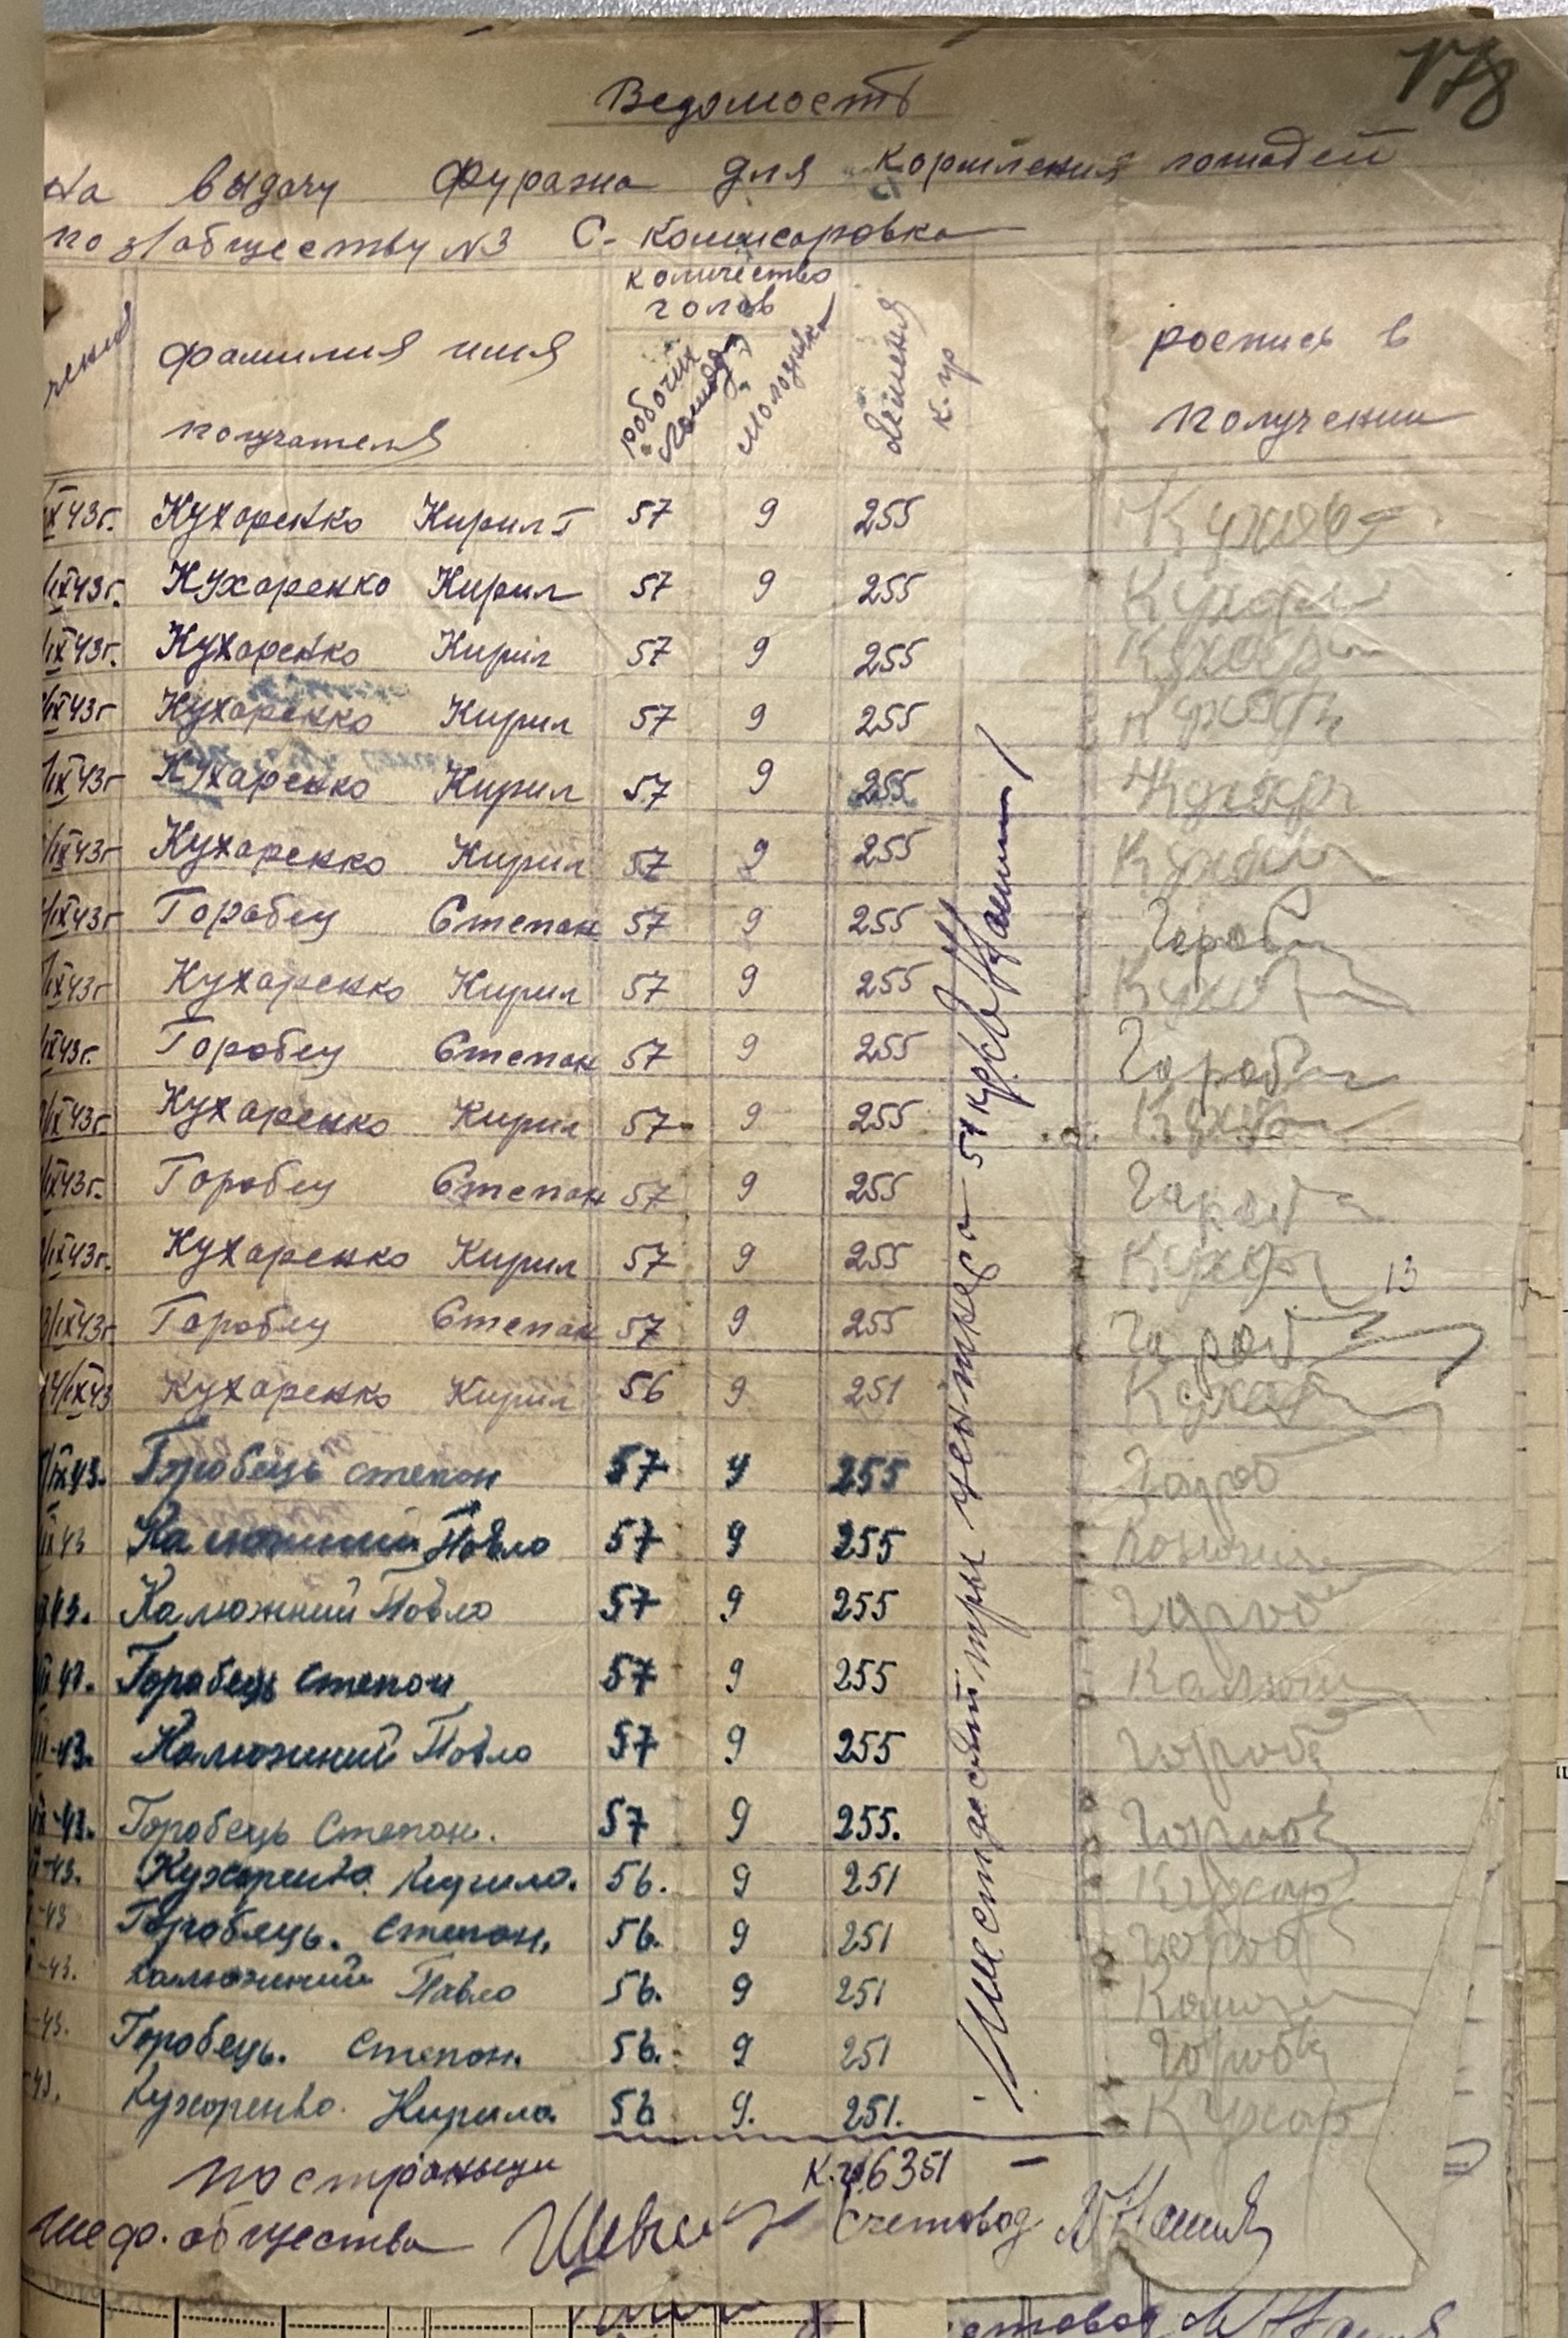 178
Ведомость
на выдачу фуража для кормления лошадей
по з/обществу №3 С. Комисаровка
чения
фамилия имя получателя
количество голов
робочих лошадей
молодняка
Ячменя к.гр
роспись в получении
IX 43г. Кухаренко Кирил Г 57 9 255 Кухар
IX 43г. Кухаренко Кирил 57 9 255 Кухар
IX 43г. Кухаренко Кирил 57 9 255 Кухар
IX 43г Кухаренко Кирил 57 9 255 Кухар
IX 43г Кухаренко Кирил 57 9 255 Кухар
IX 43г Кухаренко Кирил 57 9 255 Кухар
IX 43г Горобец Степан 57 9 255 Гороб
IX 43г Кухаренко Кирил 57 9 255 Кухар
IX 43г. Горобец Степан 57 9 255 Гороб
IX 43г. Кухаренко Кирил 57 9 255 Кухар
IX 43г. Горобец Степан 57 9 255 Гороб
IX 43г. Кухаренко Кирил 57 9 255 Кухар 13
3/IX 43г Горобец Степан 57 9 255 Гороб
14/IX 43 Кухаренко Кирил 56 9 251 Кухар
IX 43. Горобець Степон 57 9 255 Гороб
IX 43 Калюжний Повло 57 9 255
43. Калюжний Повло 57 9 255
43. Горобець Степон 57 9 255 Калюж
-43. Калюжний Повло 57 9 255 Гороб
IX -43. Горобець Степон. 57 9 255. Гороб
-43. Кухоренко Кирило. 56. 9 251 Кухар
-43 Горобець. Степон. 56. 9 251 Гороб
-43. Калюжний Павло 56. 9 251
-43. Горобець. Степон. 56. 9 251 Гороб
43. Кухоренко. Кирило. 56 9. 251. Кухар
Шестдесят три центнера 51 кгр
по странице к.г 6351 —
Шеф. общества Счетовод